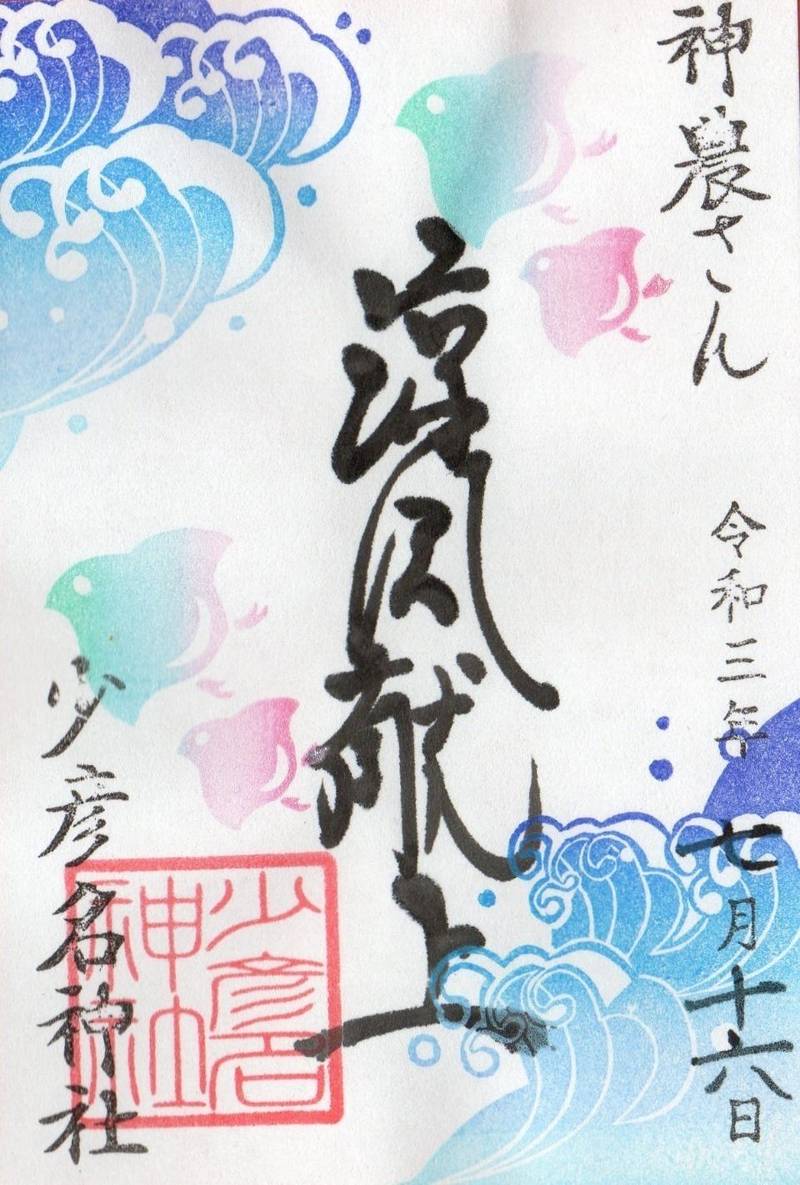 神農さん
令和三年 七月十六日
涼風献上
少彦名神社
少彦名
神社